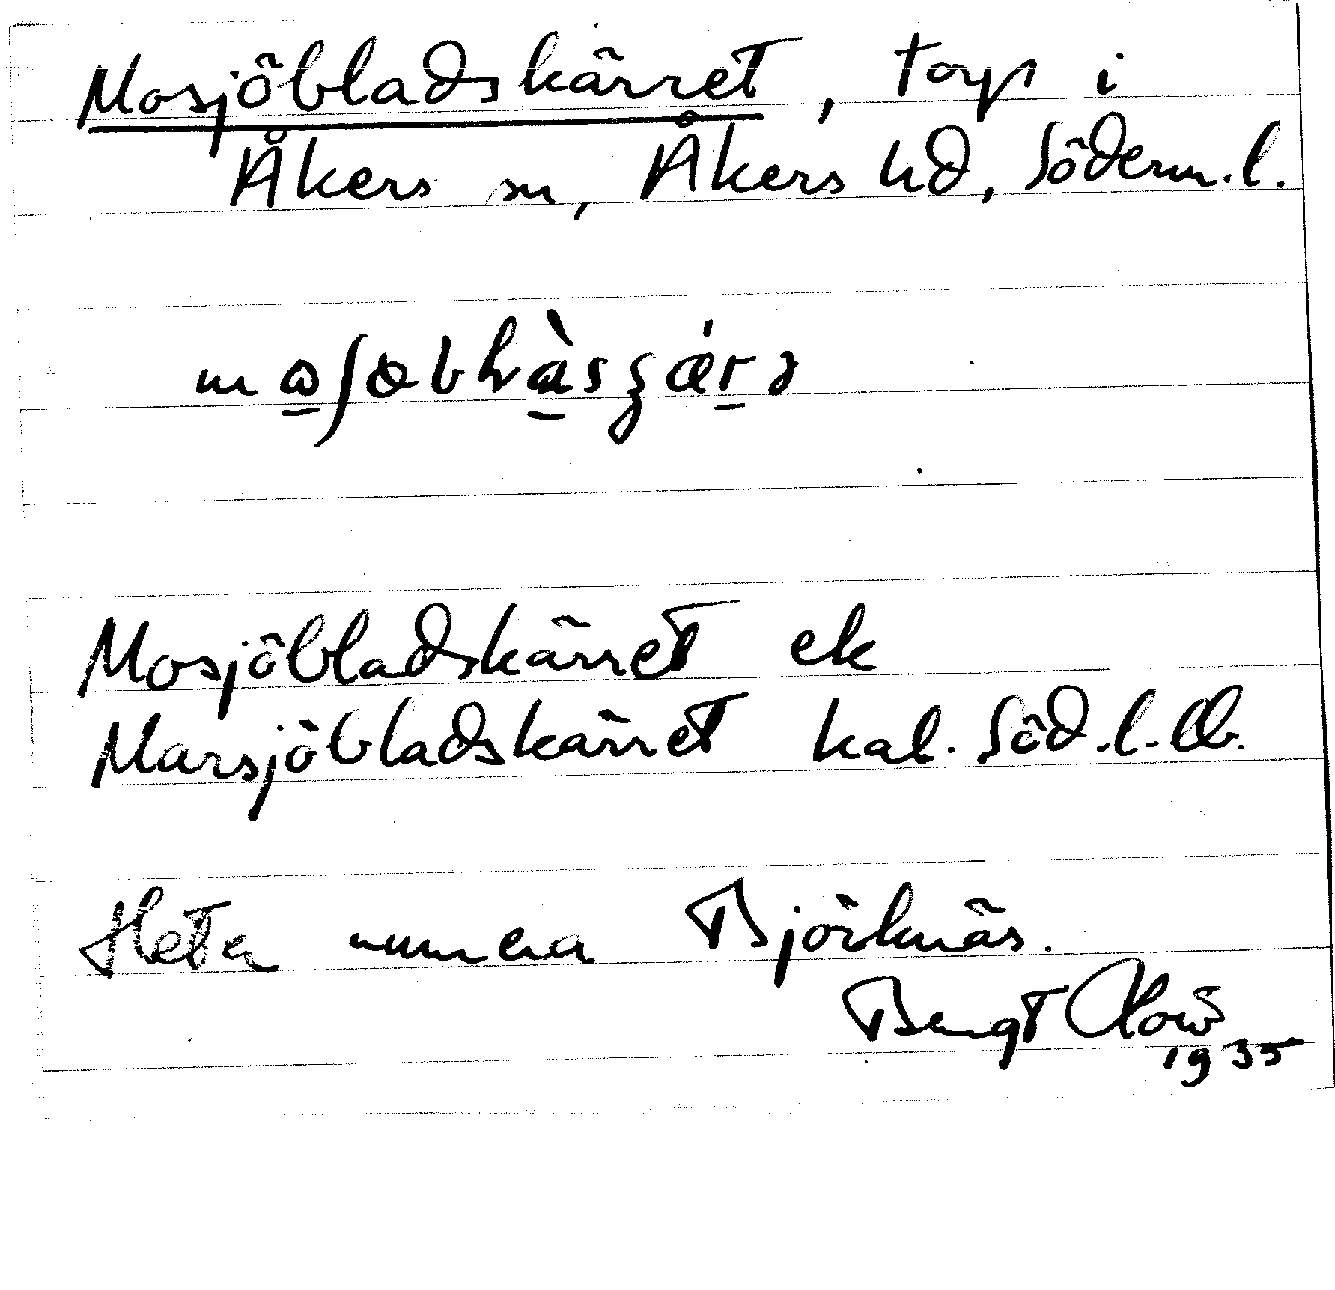 Mosjöbladskärret, torp i
Åkers sn, Åkers hd, Söderm.l.
Mosjöbladskärret ek
Marsjöbladskärret kal. Söd.l.lb.
Heter numera Björknäs.
Bengt
1935